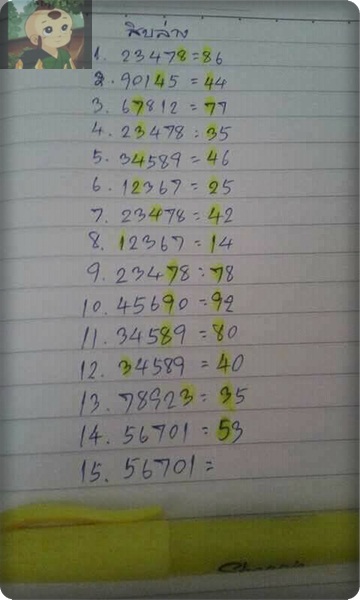 สิบล่าง
1. 23478=86
2. 90145=44
3. 67812=77
4. 23478=35
5. 34589=46
6. 12367=25
7. 23478=42
8. 12367=14
9. 23478=78
10. 45690=92
11. 34589=80
12. 34589=40
13. 78923=35
14. 56701=53
15. 56701=